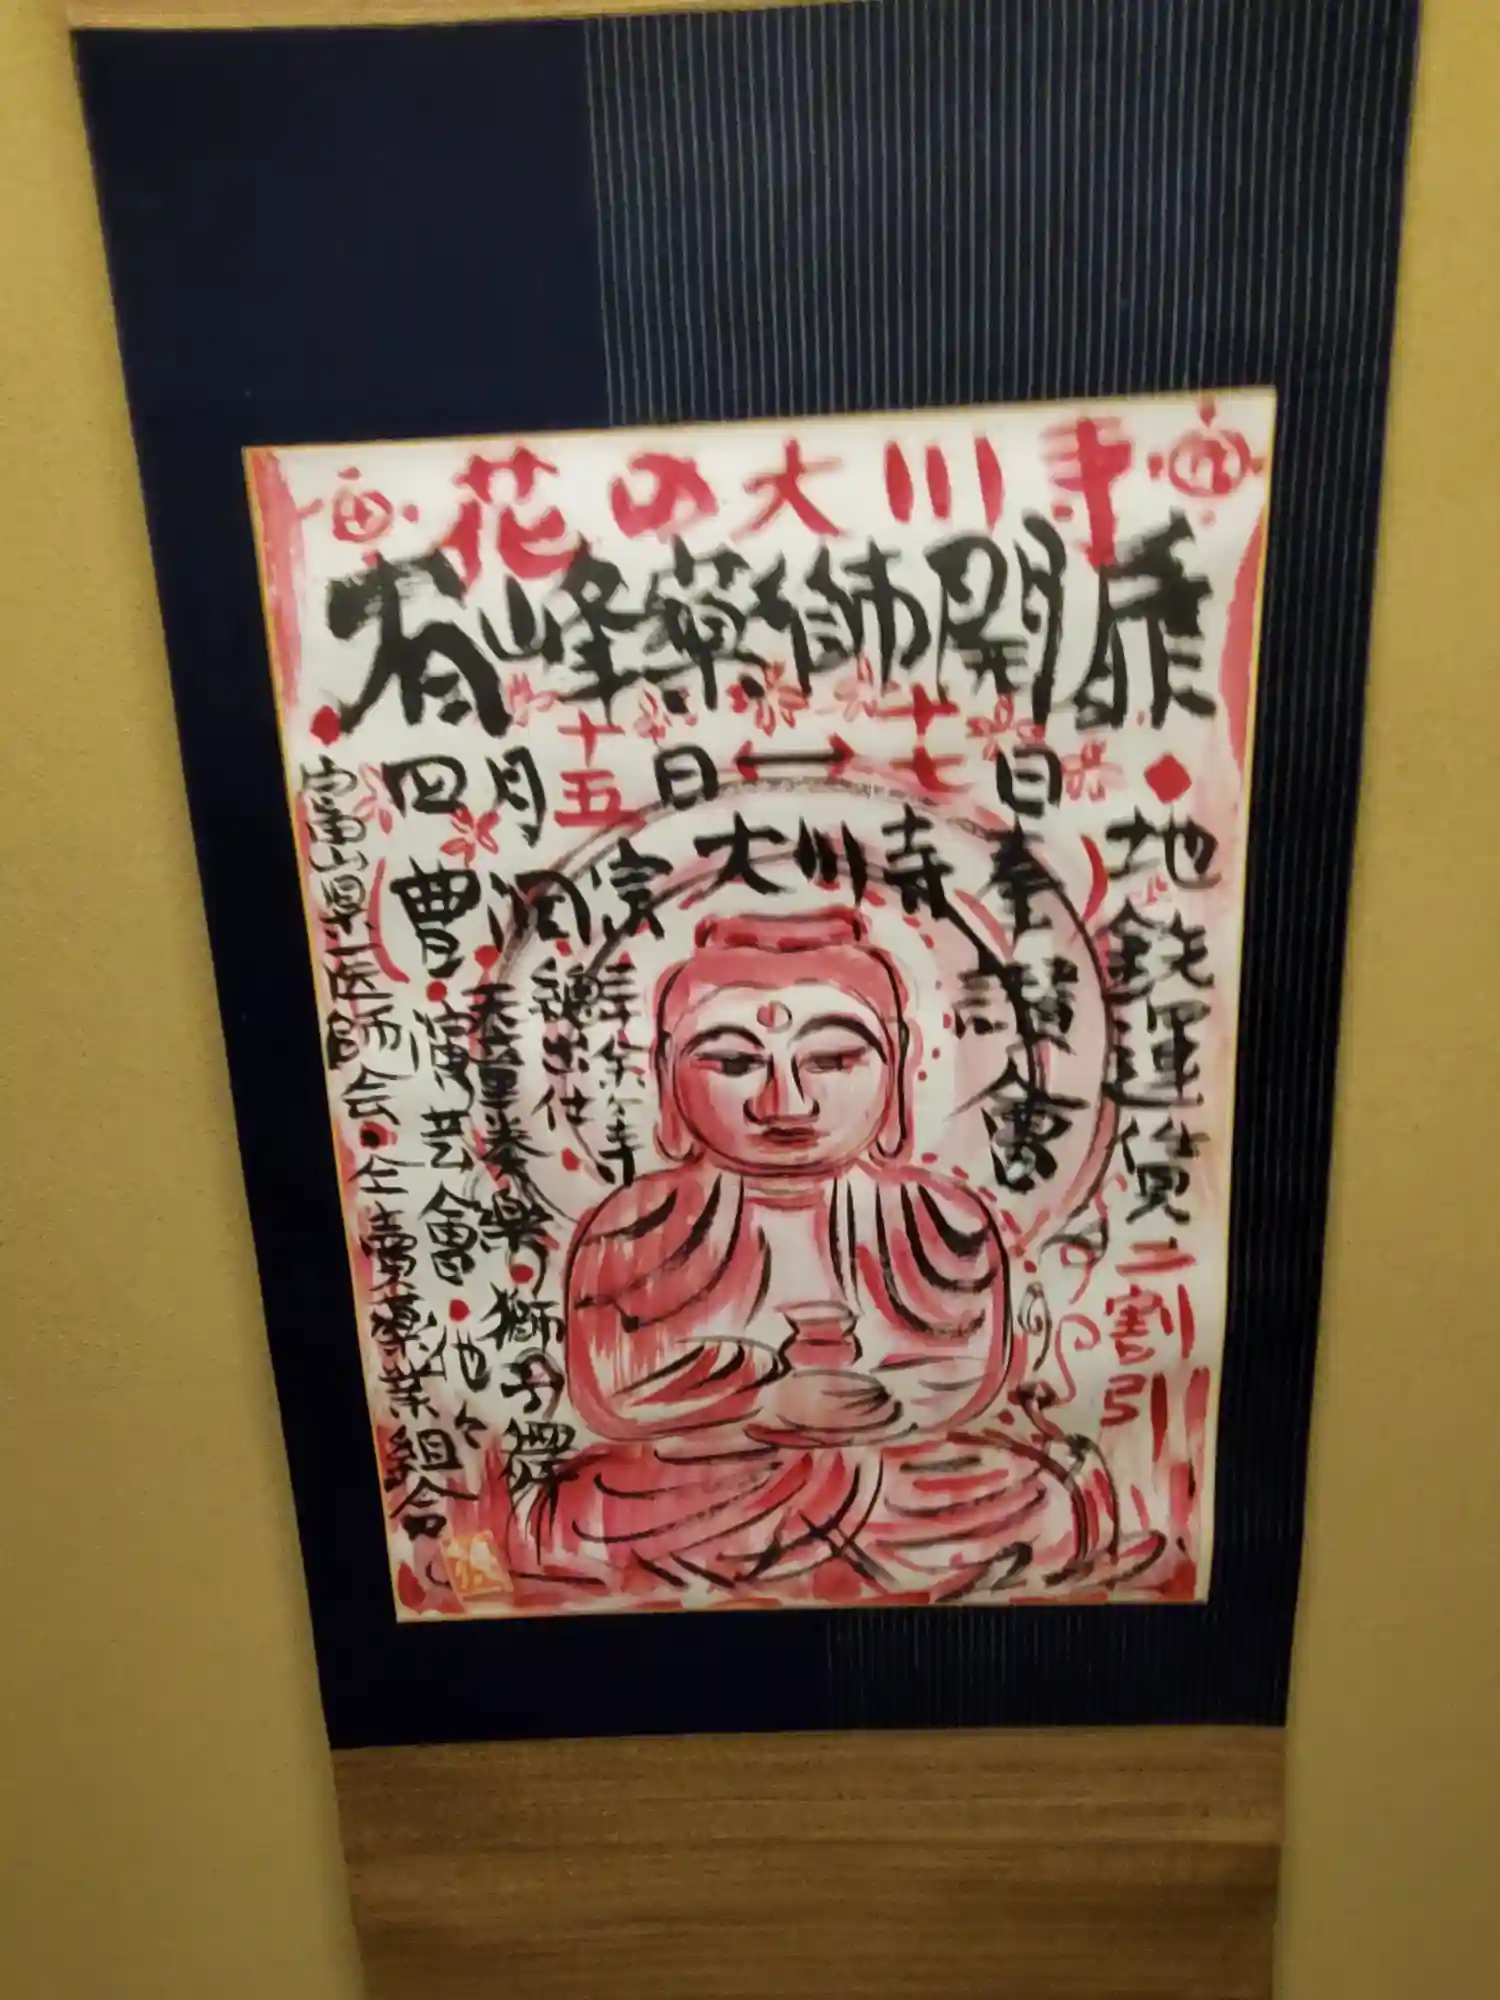 花の大川寺
有峰薬師開扉
四月十五日↔十七日
曹洞宗 大川寺奉讃會
地鉄運賃二割引
天童奏楽・獅子舞
演芸會・他
富山県医師会・仝売薬業組合